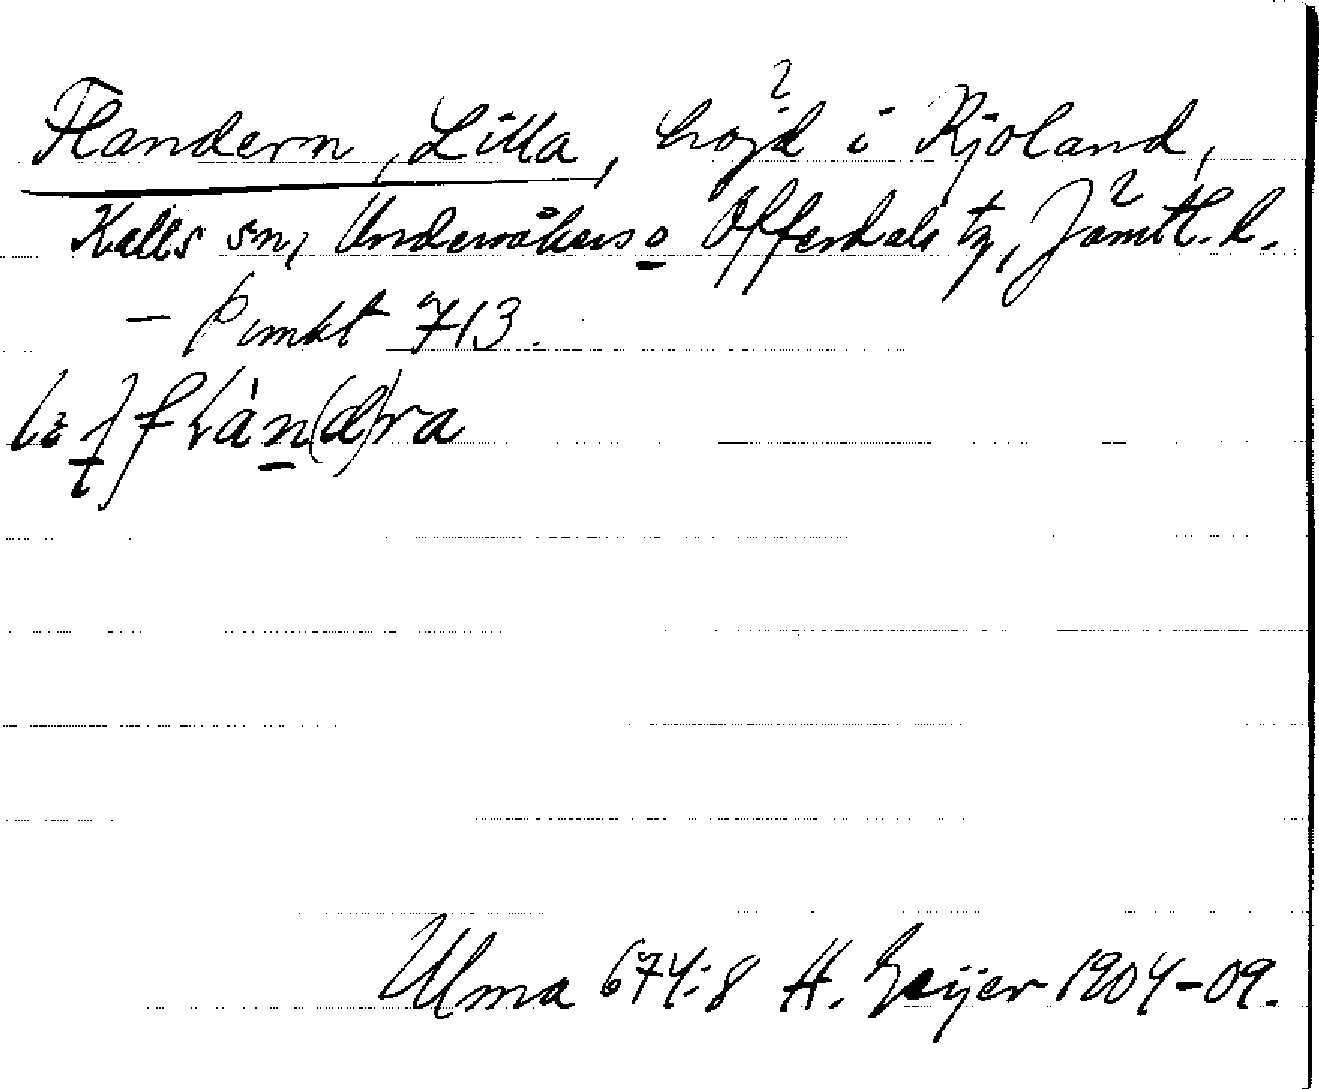 Flandern, Lilla, höjd i Kjoland,
Kalls sn, Undersåkers o Offerdals tg, Jämtl. l.
– Punkt 713.
flàn(d)ra
Ulma 674:8 H. Geijer 1904–09.